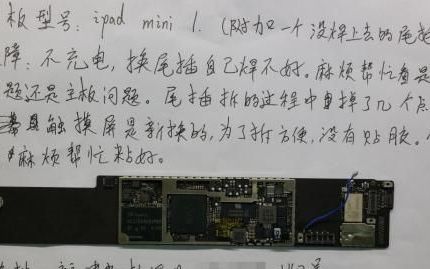 板型号: ipad mini 1. (附加一个没焊上去的尾插
障: 不充电, 换尾插自己焊不好。麻烦帮忙看是
题还是主板问题。尾插拆的过程中自掉了几个点
触摸屏是新换的,为了拆方便,没有贴胶。
麻烦帮忙粘好。